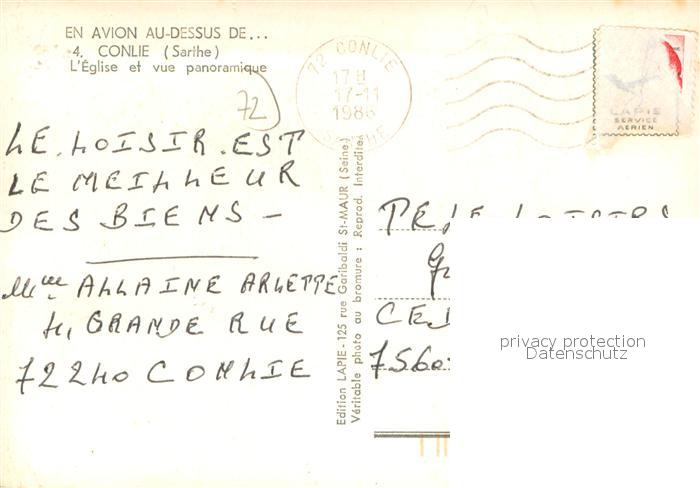 EN AVION AU-DESSUS DE...
4. CONLIE (Sarthe)
L'Église et vue panoramique
72
72 CONLIE
17 H
17-11
1986
SARTHE
LAPIE
SERVICE
AERIEN
LE. LOISIR. EST
LE MEILLEUR
DES BIENS -
Mme ALLAINE ARLETTE
GRANDE RUE
72240 CONLIE
Edition LAPIE - 125 rue Garibaldi St-MAUR (Seine)
Véritable photo au bromure : Reprod. Interdites
TELE LOISIRS
CED
7560
privacy protection
Datenschutz